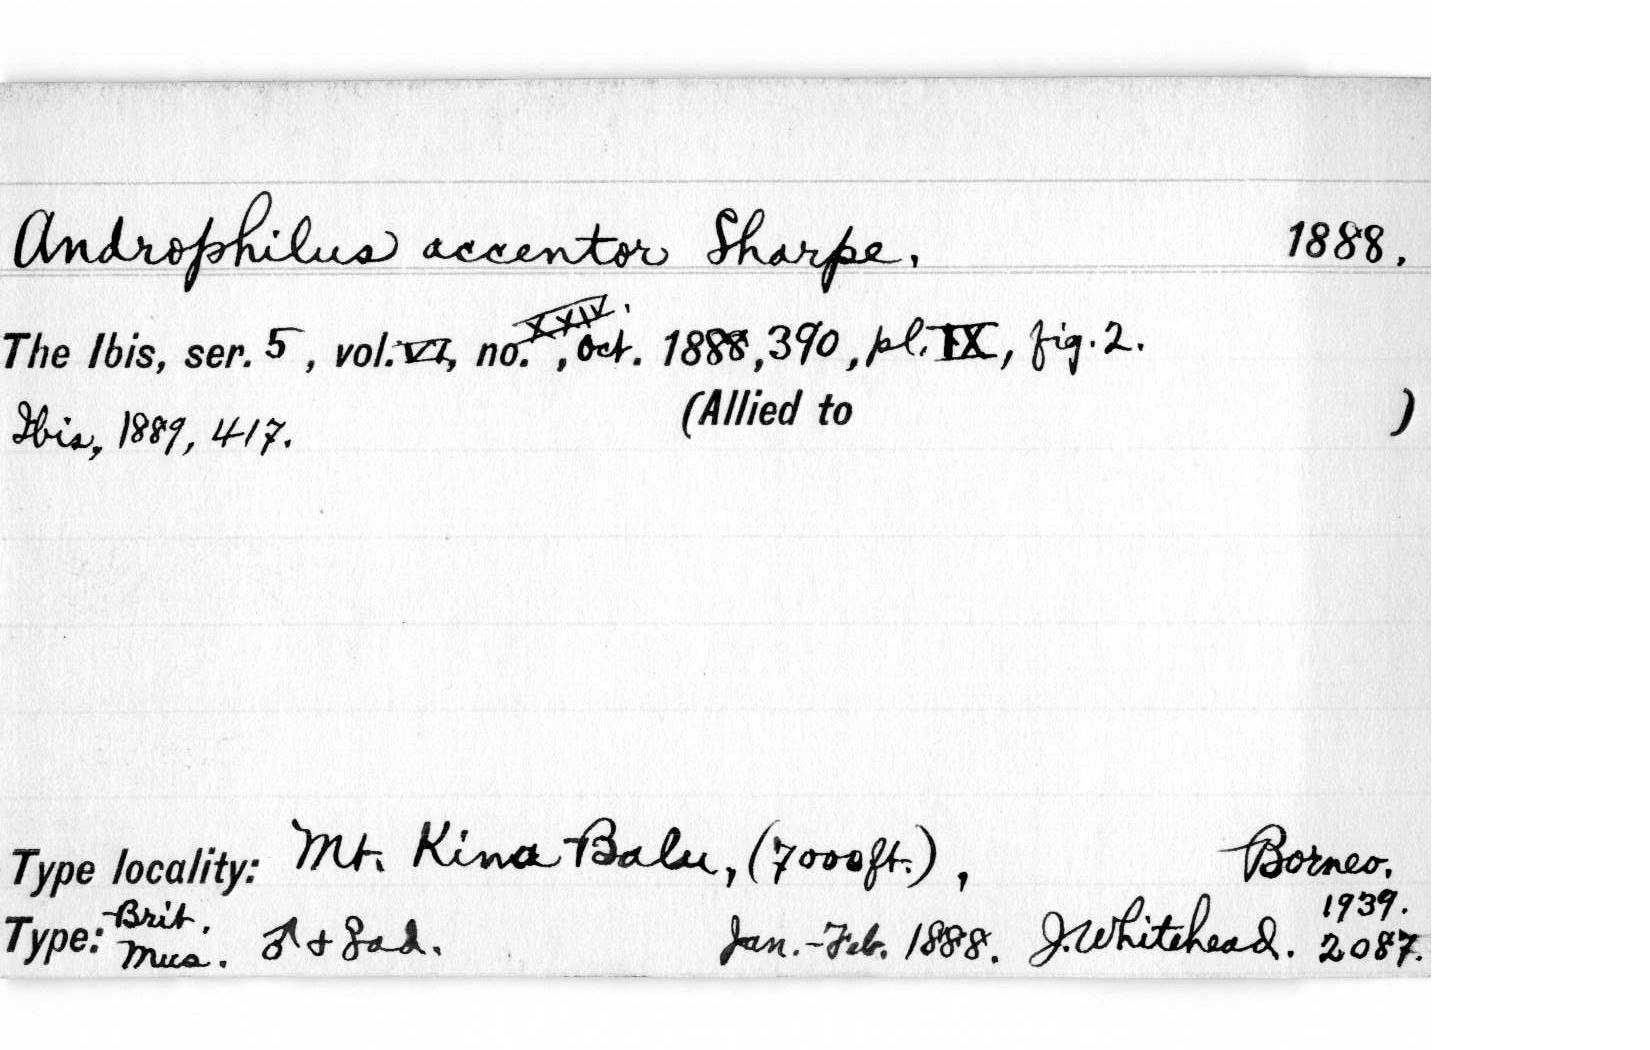 Androphilus accentor Sharpe. 1888.
The Ibis, ser. 5, vol. VI, no. XXIV., Oct. 1888, 390, pl. IX, fig. 2.
(Allied to )
Ibis, 1889, 417.
Type locality: Mt. Kina Balu, (7000 ft.), Borneo.
Type: Brit. Mus. ♂ + ♀ ad. Jan.-Feb. 1888. J. Whitehead. 1939. 2087.